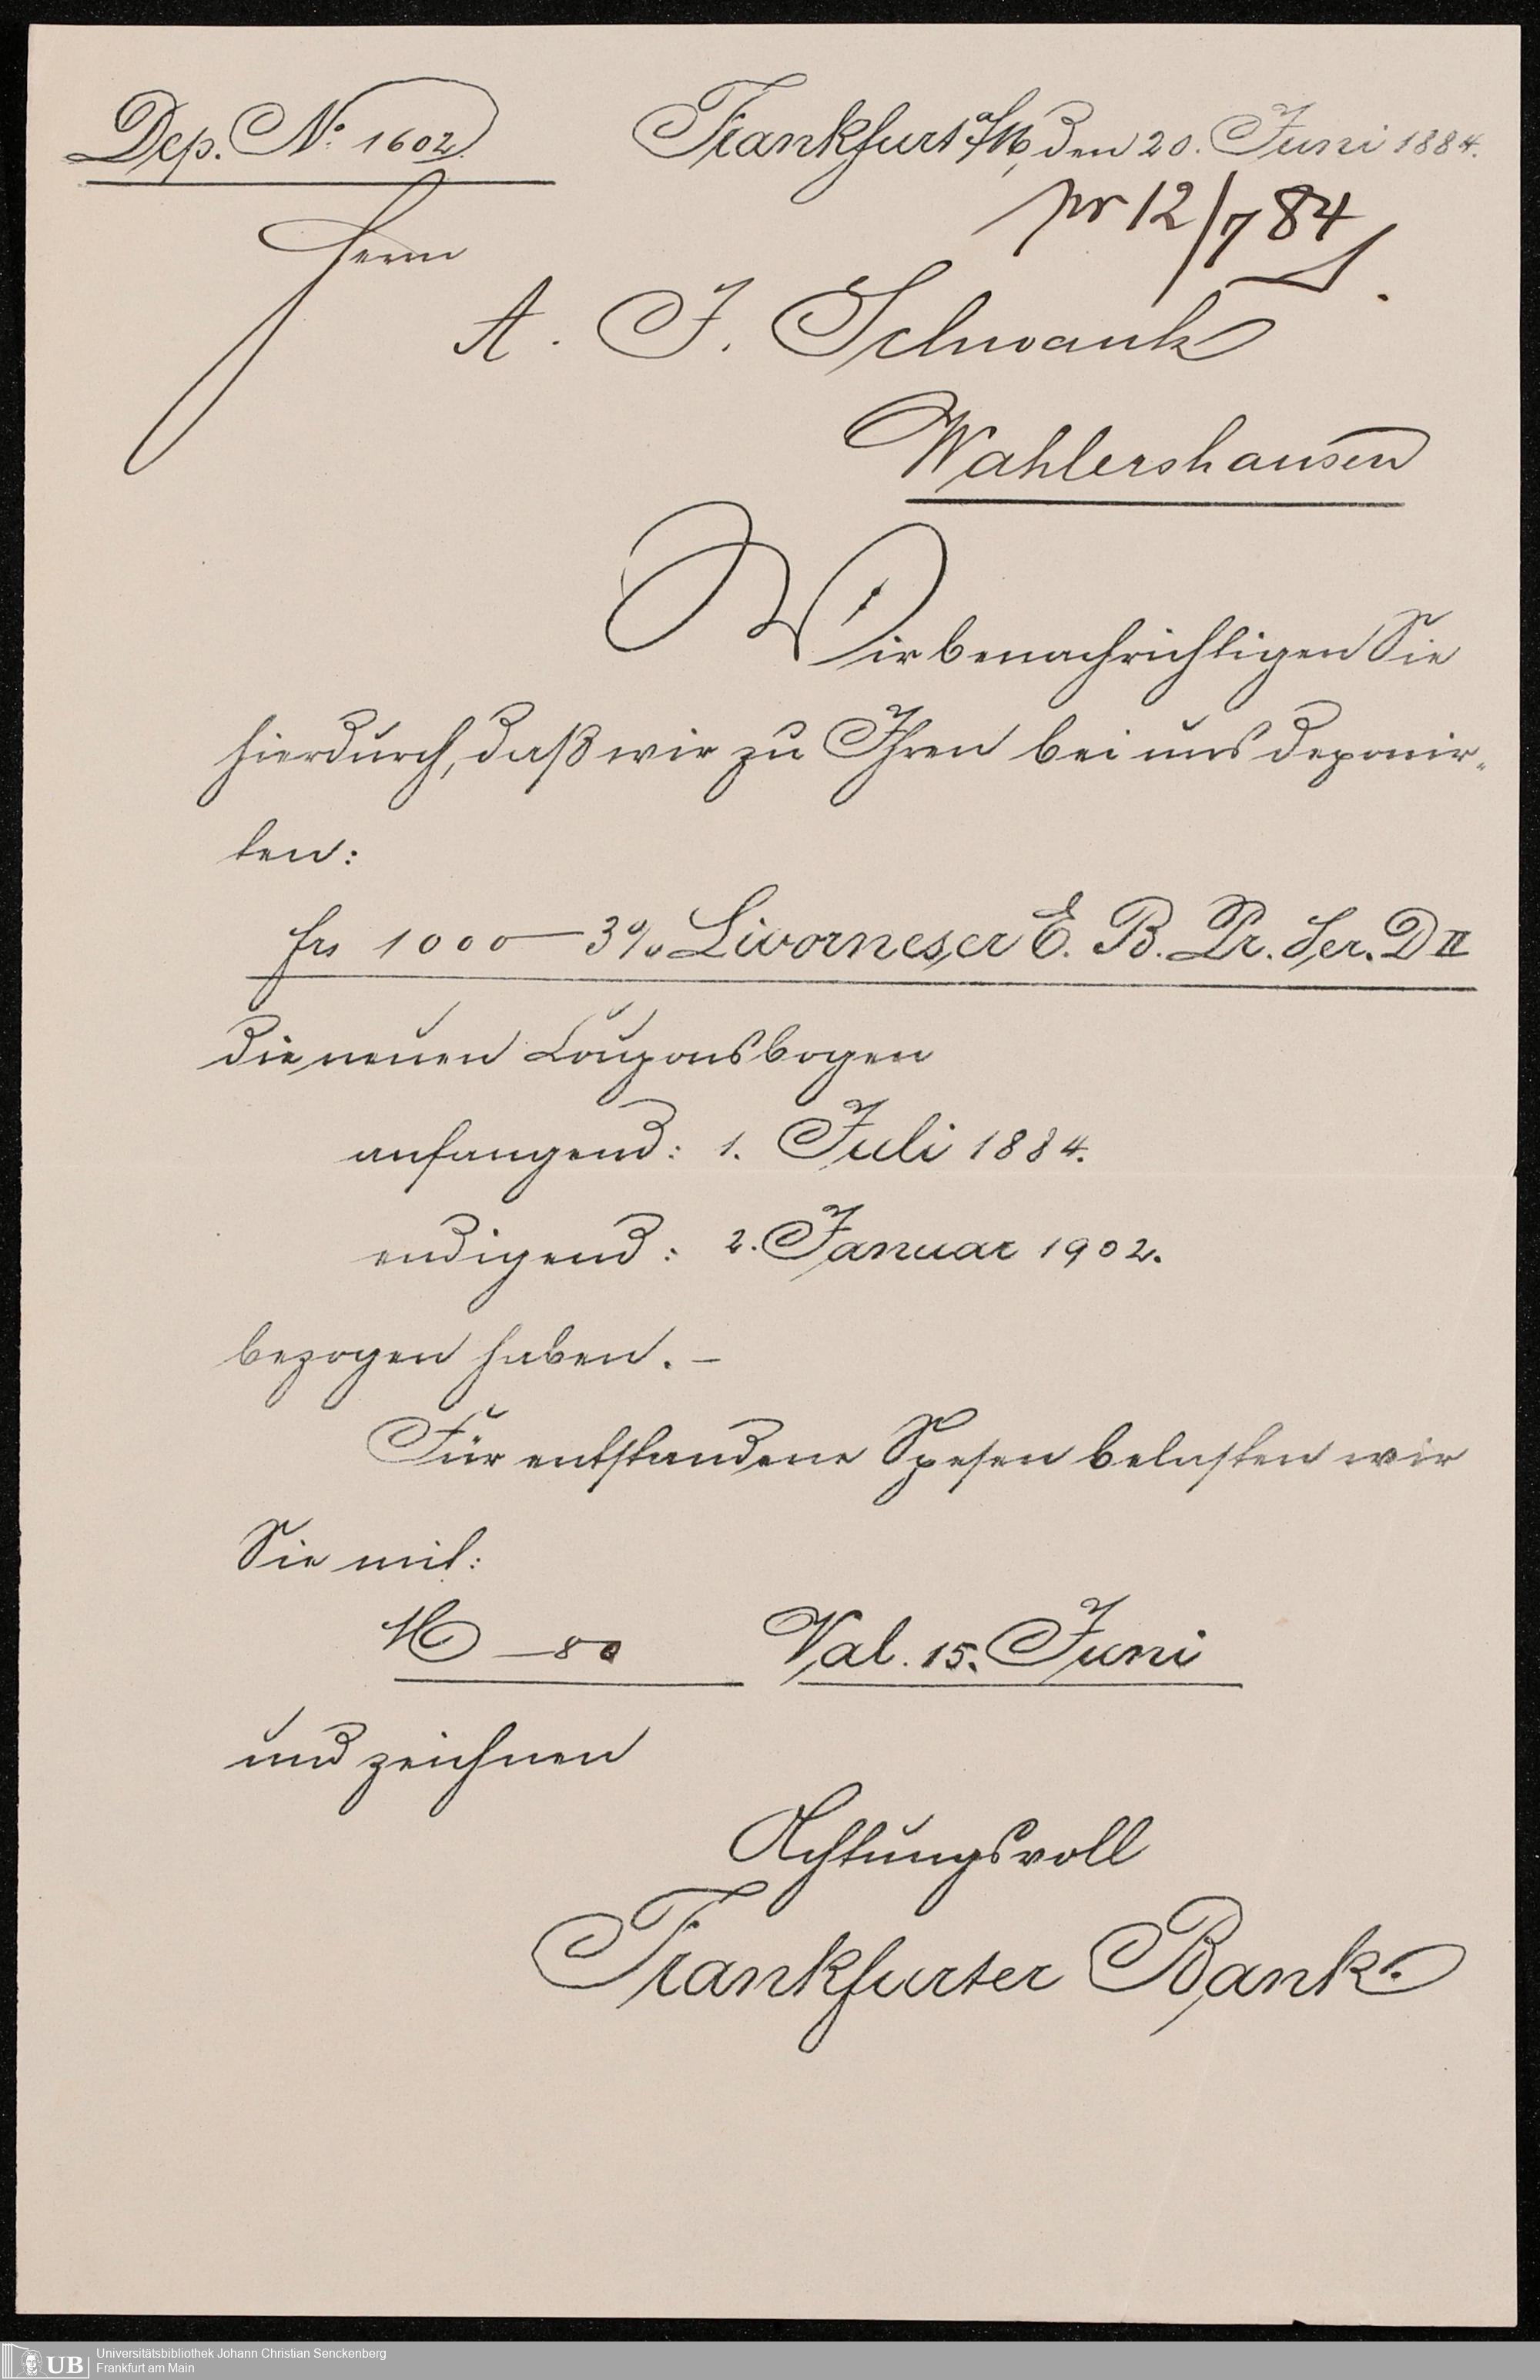 Dep. No. 1602.
Frankfurt a/M, den 20. Juni 1884.
pr 12/7 84
Herrn
A. F. Schwank
Wahlershausen
Wir benachrichtigen Sie
hierdurch, daß wir zu Ihren bei uns deponir-
ten:
frs 1000 — 3% Livorneser E. B. Pr. Ser. D II
die neuen Couponsbogen
anfangend: 1. Juli 1884.
endigend: 2. Januar 1902.
bezogen haben. –
Für entstandene Spesen belasten wir
Sie mit:
M — 80 Val. 15. Juni
und zeichnen
Achtungsvoll
Frankfurter Bank.
UB
Universitätsbibliothek Johann Christian Senckenberg
Frankfurt am Main